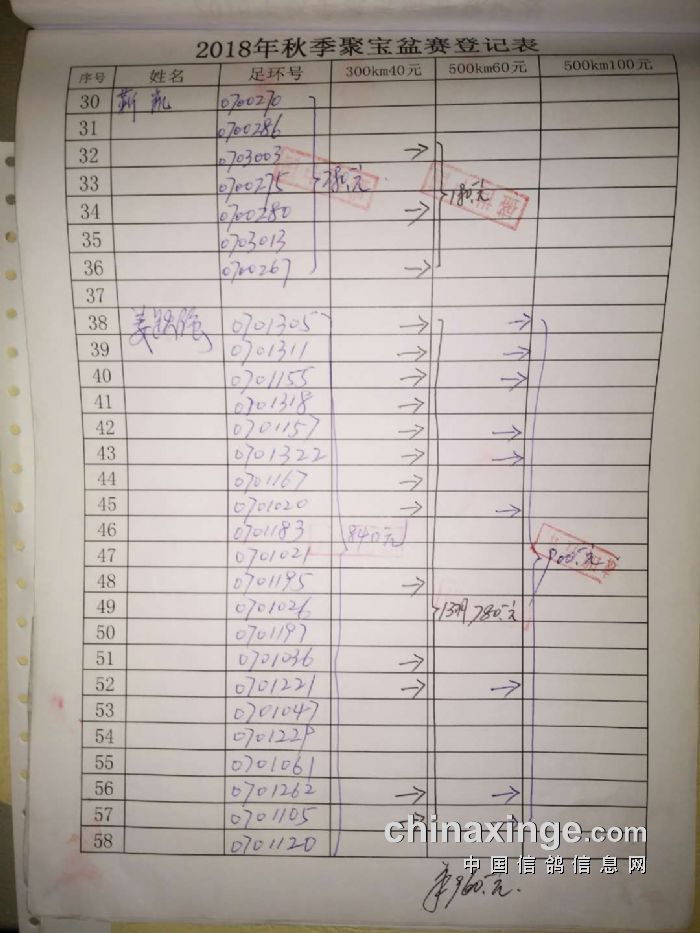 2018年秋季聚宝盆赛登记表
序号 姓名 足环号 300km40元 500km60元 500km100元
30 靳凯 0700270
31 0700286
32 0703003 →
33 0700275 280.元 180.元
34 0700280 →
35 0703013
36 0700267 →
37
38 0701305 → →
39 0701311 → →
40 0701155 → →
41 0701318 →
42 0701157 → →
43 0701322 → →
44 0701167 →
45 0701020 → →
46 0701183 840元
47 0701021
48 0701195 →
49 0701026 780.元
50 0701197
51 0701036 →
52 0701221 → →
53 0701047
54 0701229
55 0701061
56 0701262 → →
57 0701105 → →
58 0701120
chinaxinge.com
中国信鸽信息网